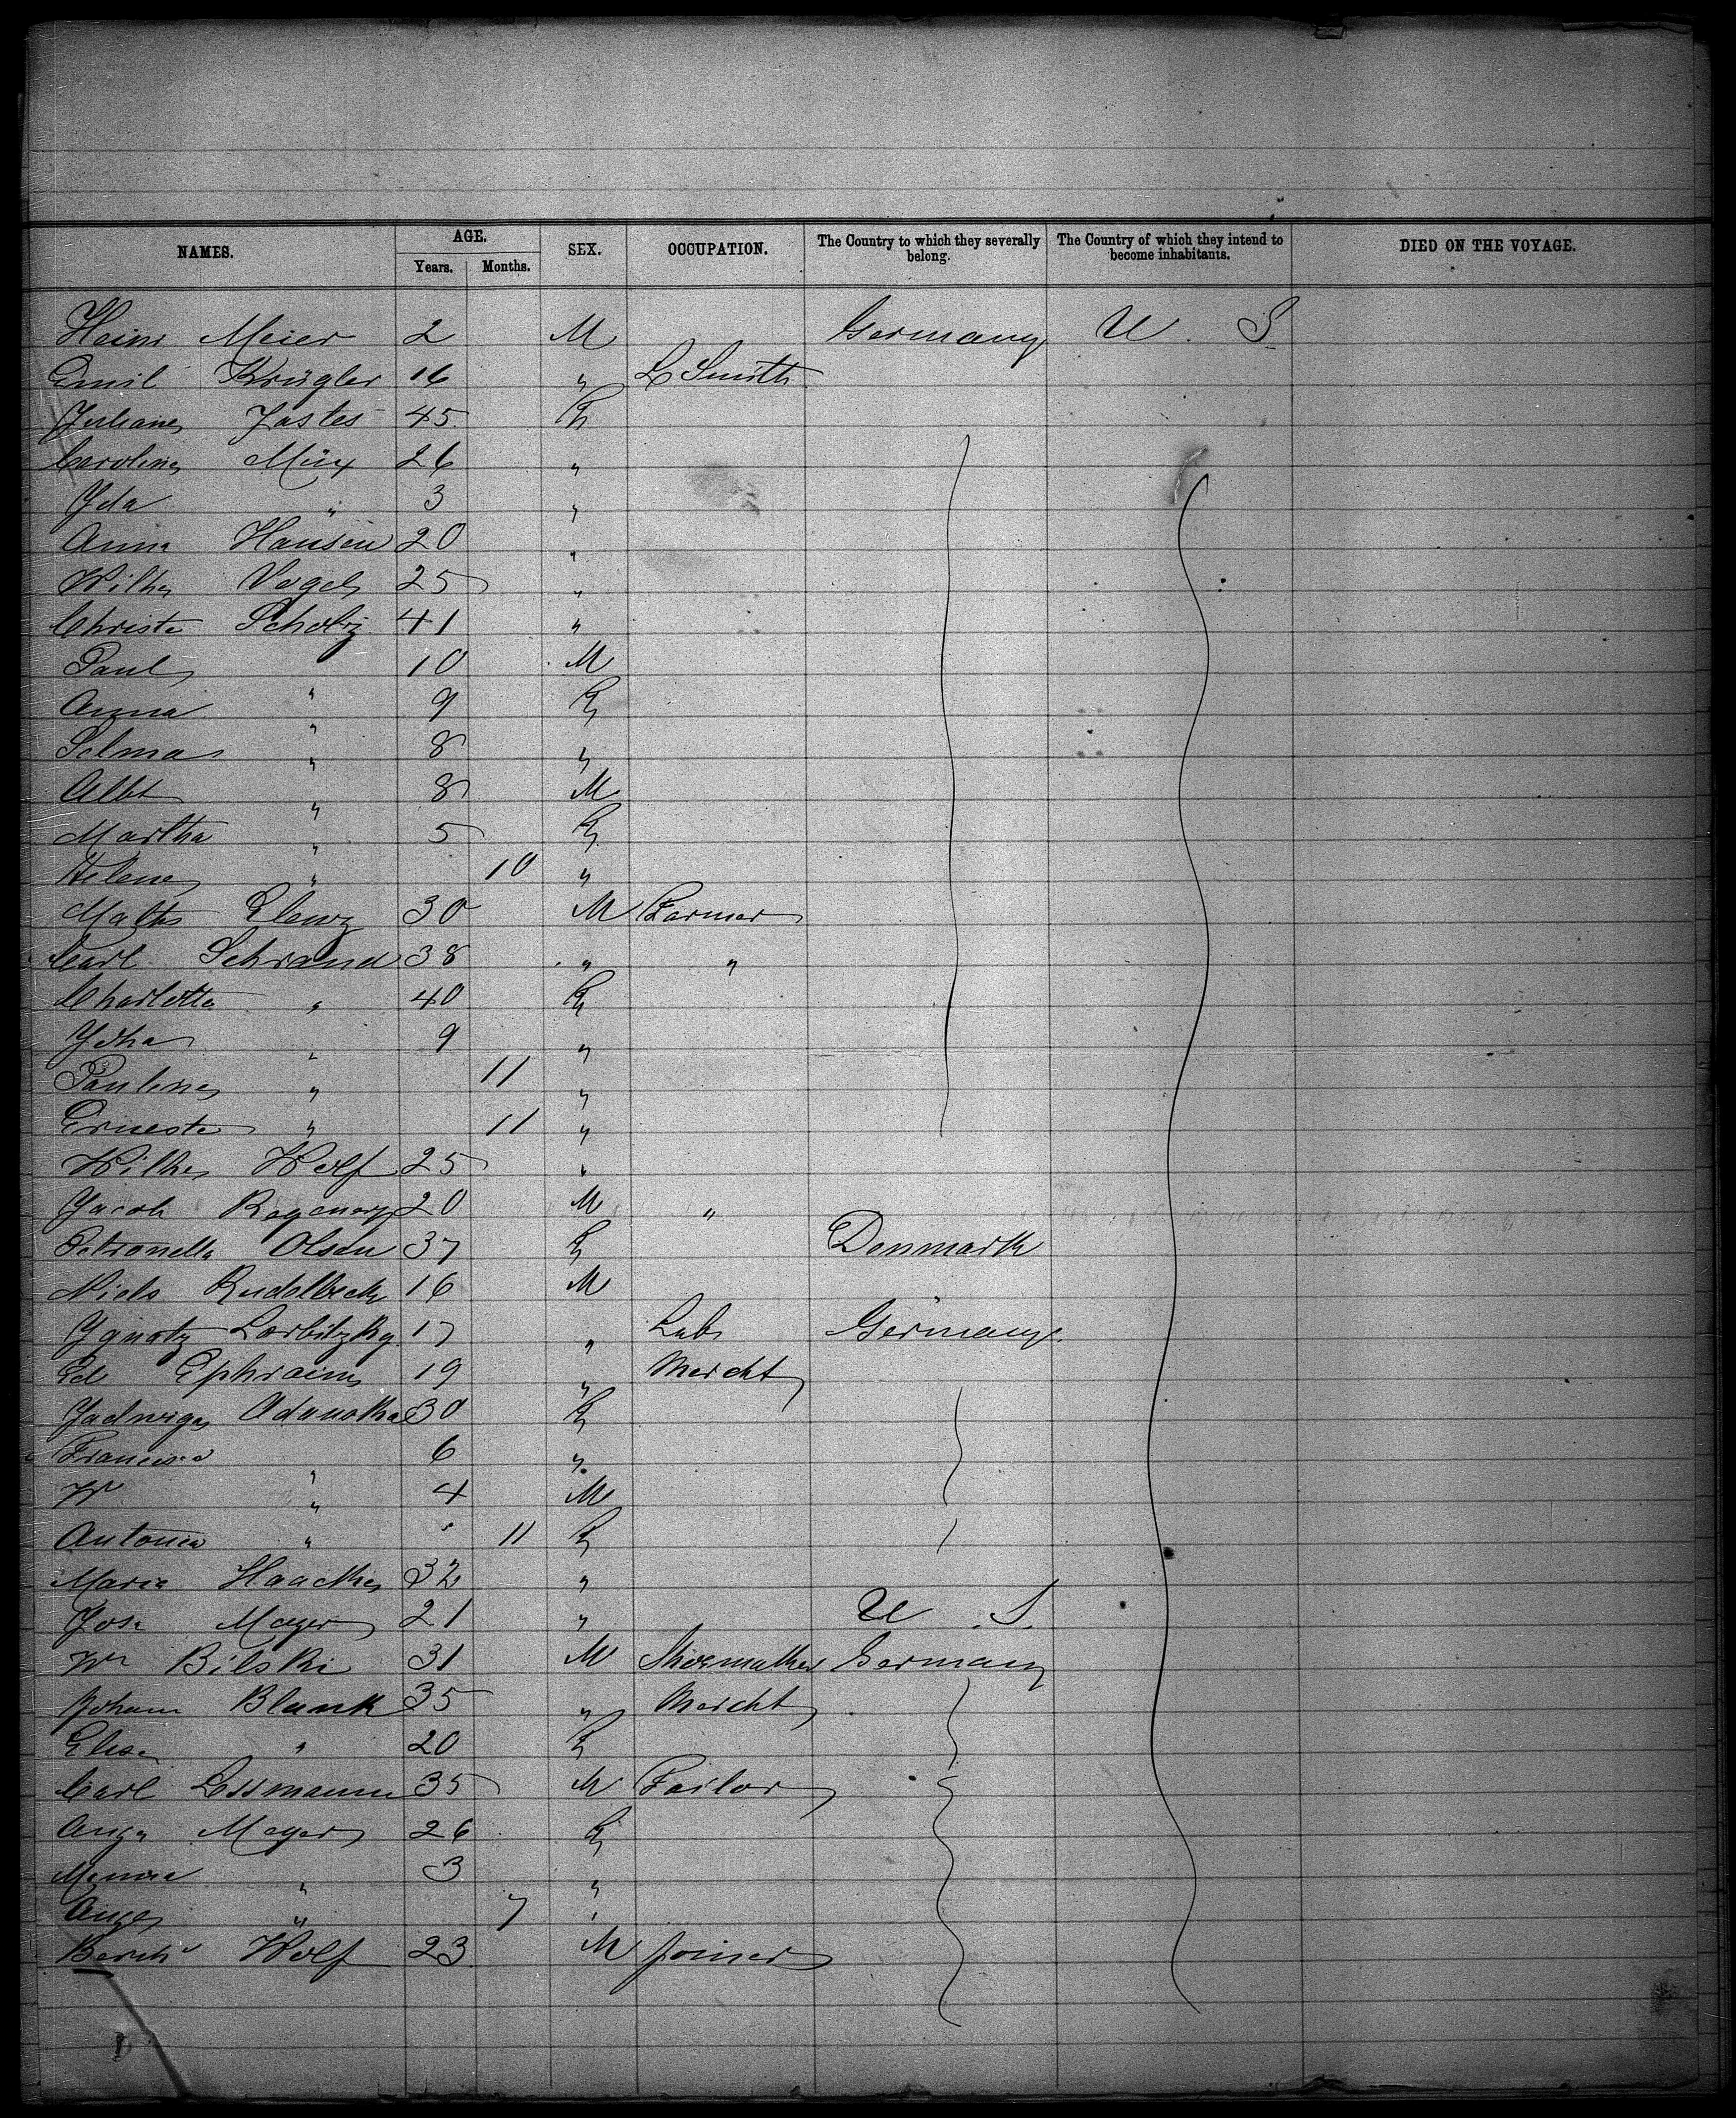 NAMES. AGE. SEX. OCCUPATION. The Country to which they severally belong. The Country of which they intend to become inhabitants. DIED ON THE VOYAGE.
Years. Months.
Heinr Meier 2 M Germany U. S
Emil Krügler 16 " L Smith
Juliane Jastes 45 F
Caroline Müx 26 "
Ida " 3 "
Anna Hansen 20 "
Wilhe Vogel 25 "
Christe Scholz 41 "
Paul " 10 M
Anna " 9 F
Selma " 8 "
Albt " 8 M
Martha " 5 F
Helene " 10 "
Maths 30 M Farmer
Carl Schrand 38 " "
Charlotte " 40 F
Joha " 9 "
Pauline " 11 "
Erneste " 11 "
Wilhe Wolf 25 "
Jacob 20 M "
Petronella Olsen 37 F Denmark
Niels Rudolbeck 16 M
Ignatz Lorbitzky 17 " Lab Germany
Ed Ephraim 19 " Mercht
Jadwiga Adanska 30 F
Francisca " 6 "
W " 4 M
Antonia " 11 F
Maria Haacke 32 "
Josa Mayer 21 " U. S.
Wm Bilski 31 M Shoemaker Germany
Johann Blank 35 " Mercht
Elise " 20 F
Carl Lossmann 35 M Tailor
Auga Meyer 26 F
Menna " 3 "
Auge " 7 "
Bernh Wolf 23 M Joiner